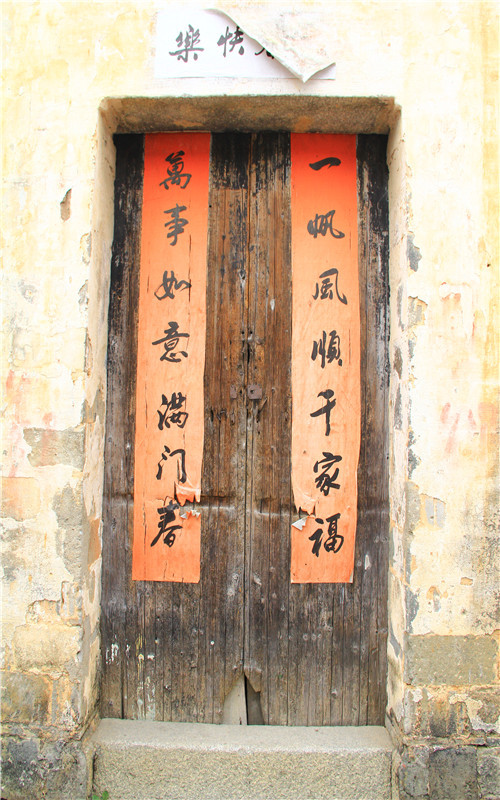 快樂
一帆風順千家福
萬事如意满门春